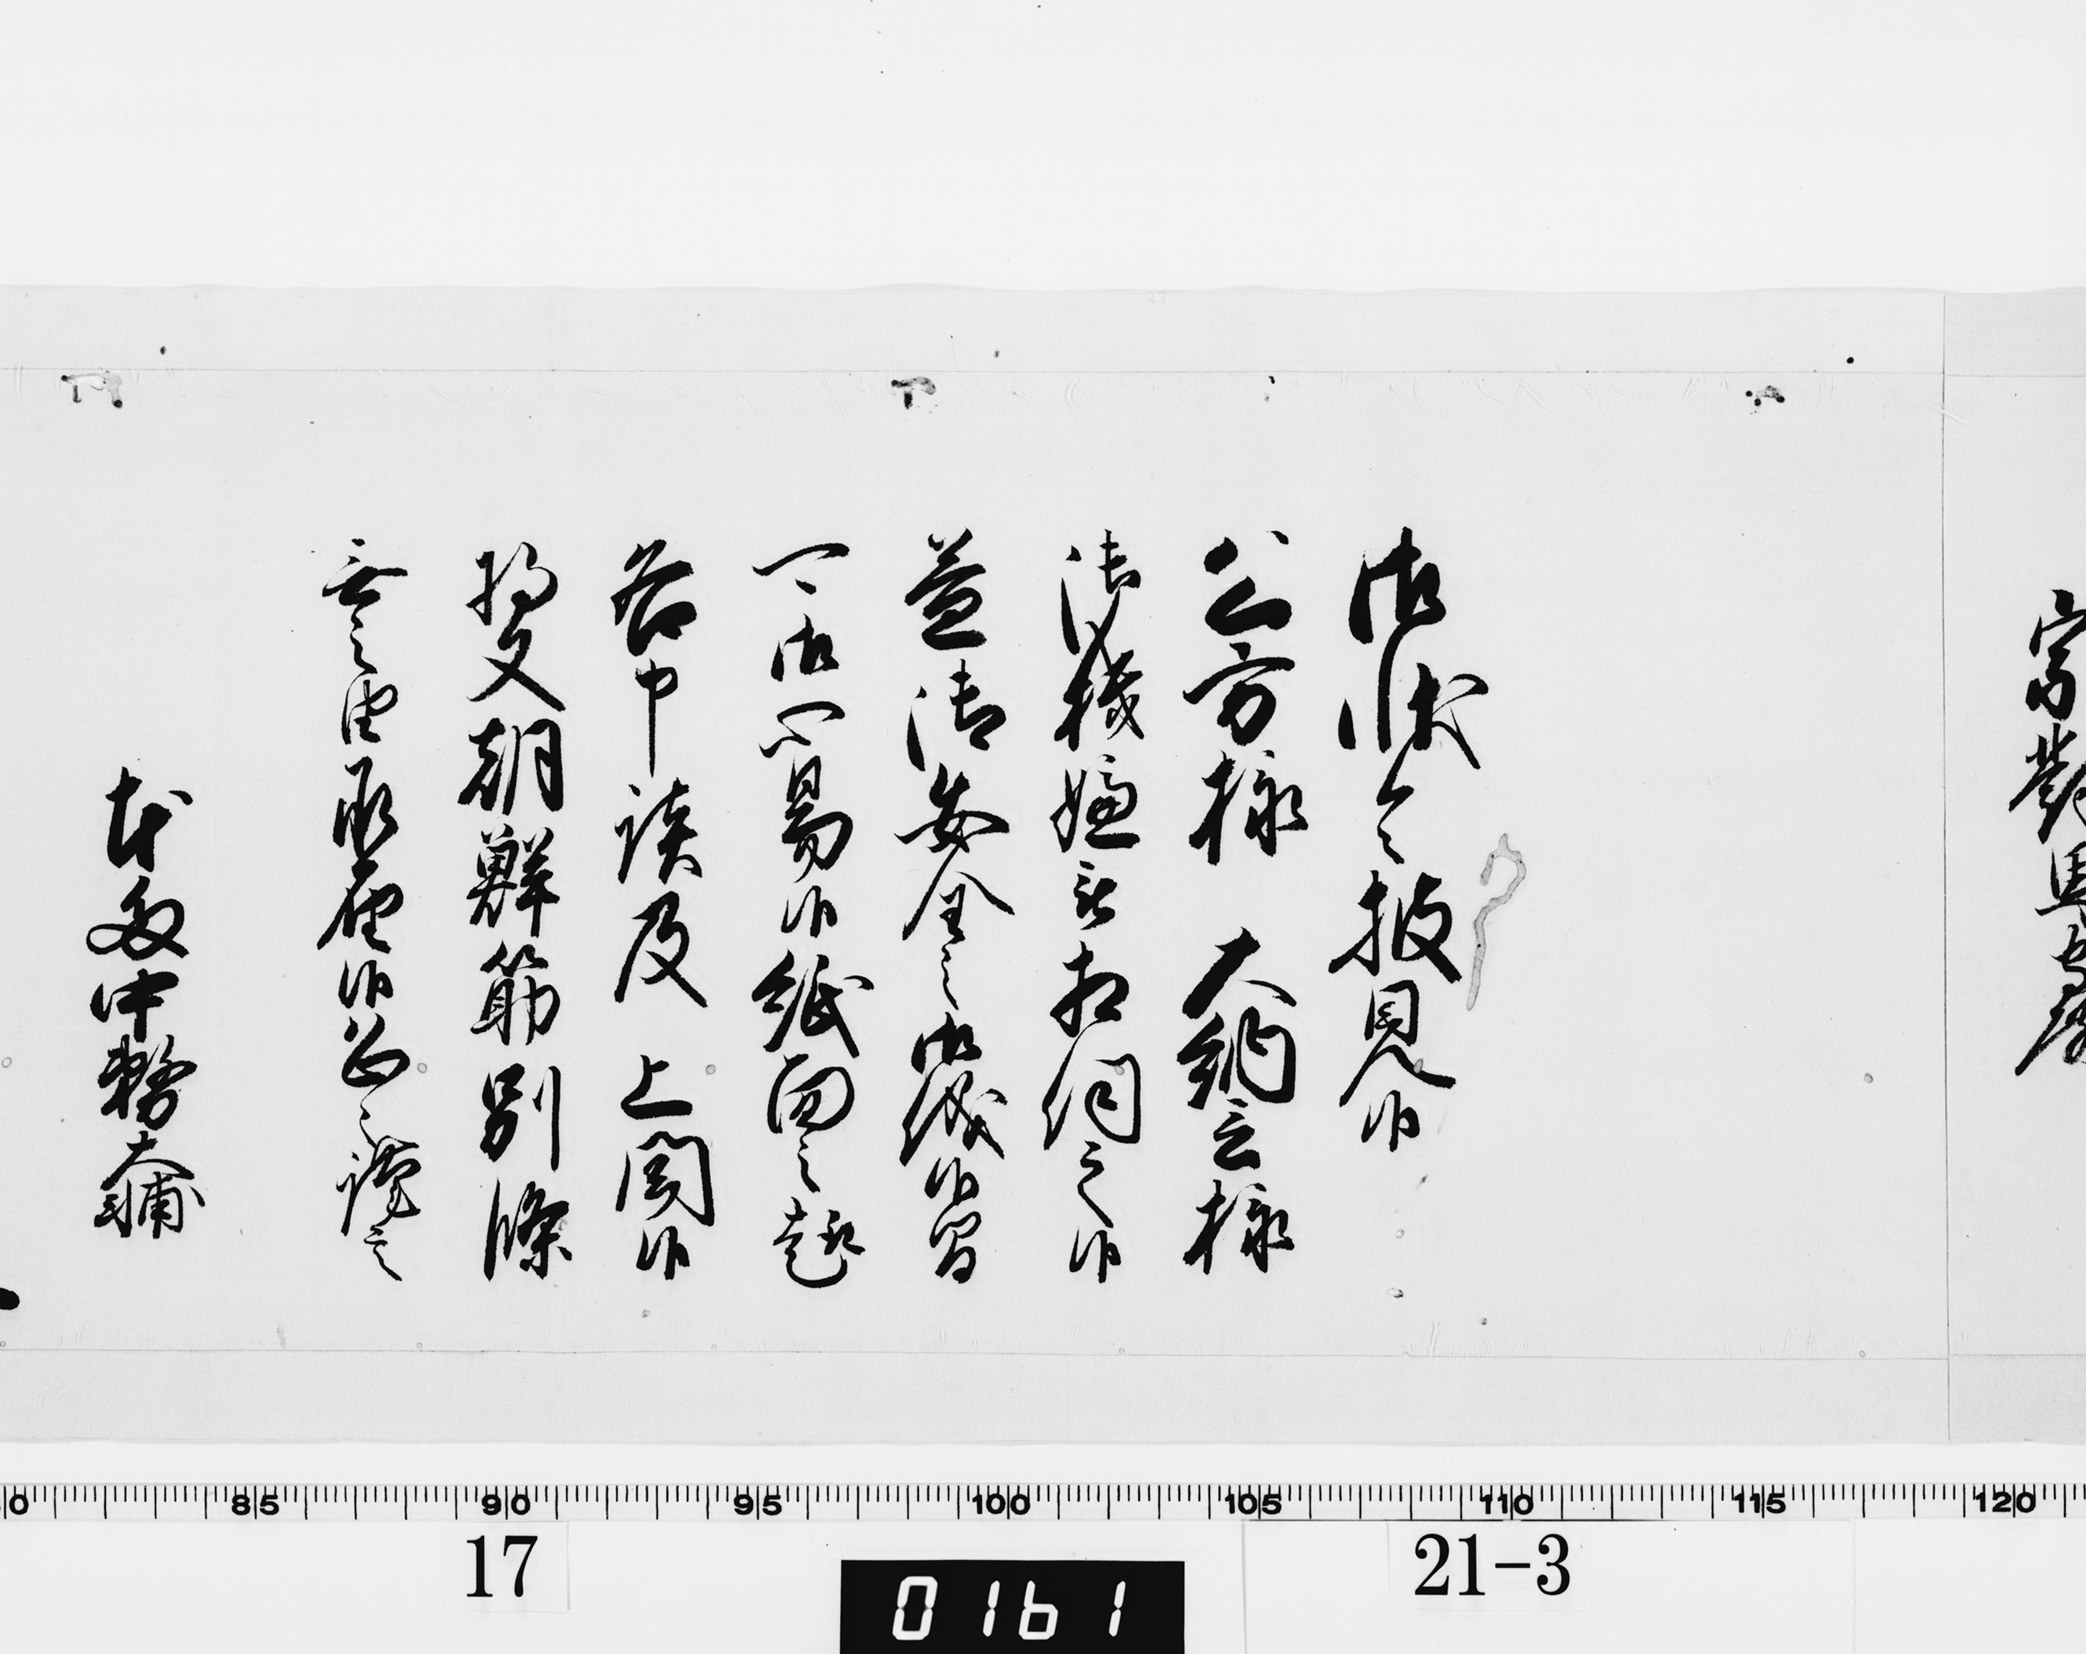 宗對馬守殿
御状令披見候
公方様　大納言様
御機嫌之相伺之候
益御安全之御儀候間
可御心易候紙面之趣
各申談及　上聞候
将又朝鮮筋別條
無之由承届候恐々謹言
本多中務大輔
80 85 90 95 100 105 110 115 120
17
21-3
0161